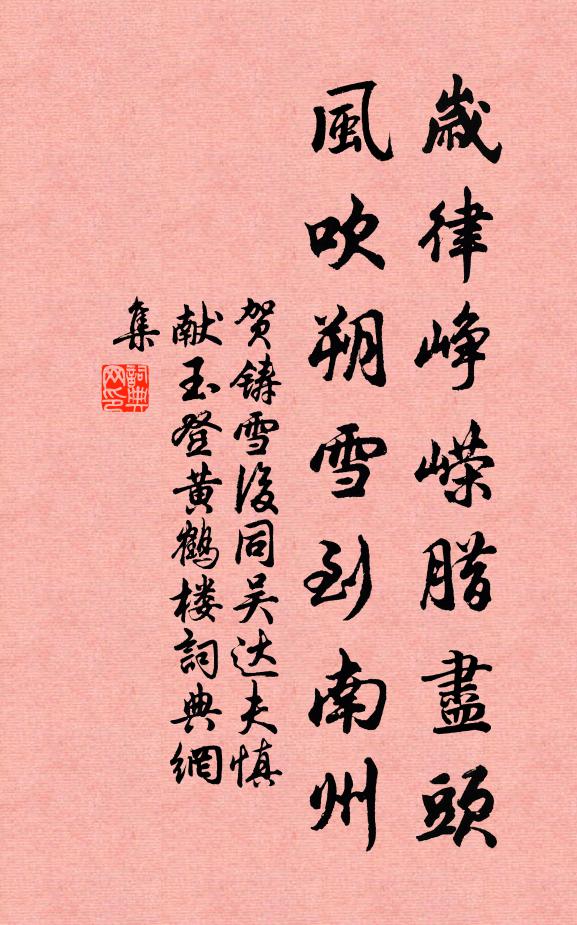 歲律峥嵘腊盡頭
風吹朔雪到南州
贺铸雪後同吴达夫慎
献玉登黄鶴楼詞典網
集
詞典网印